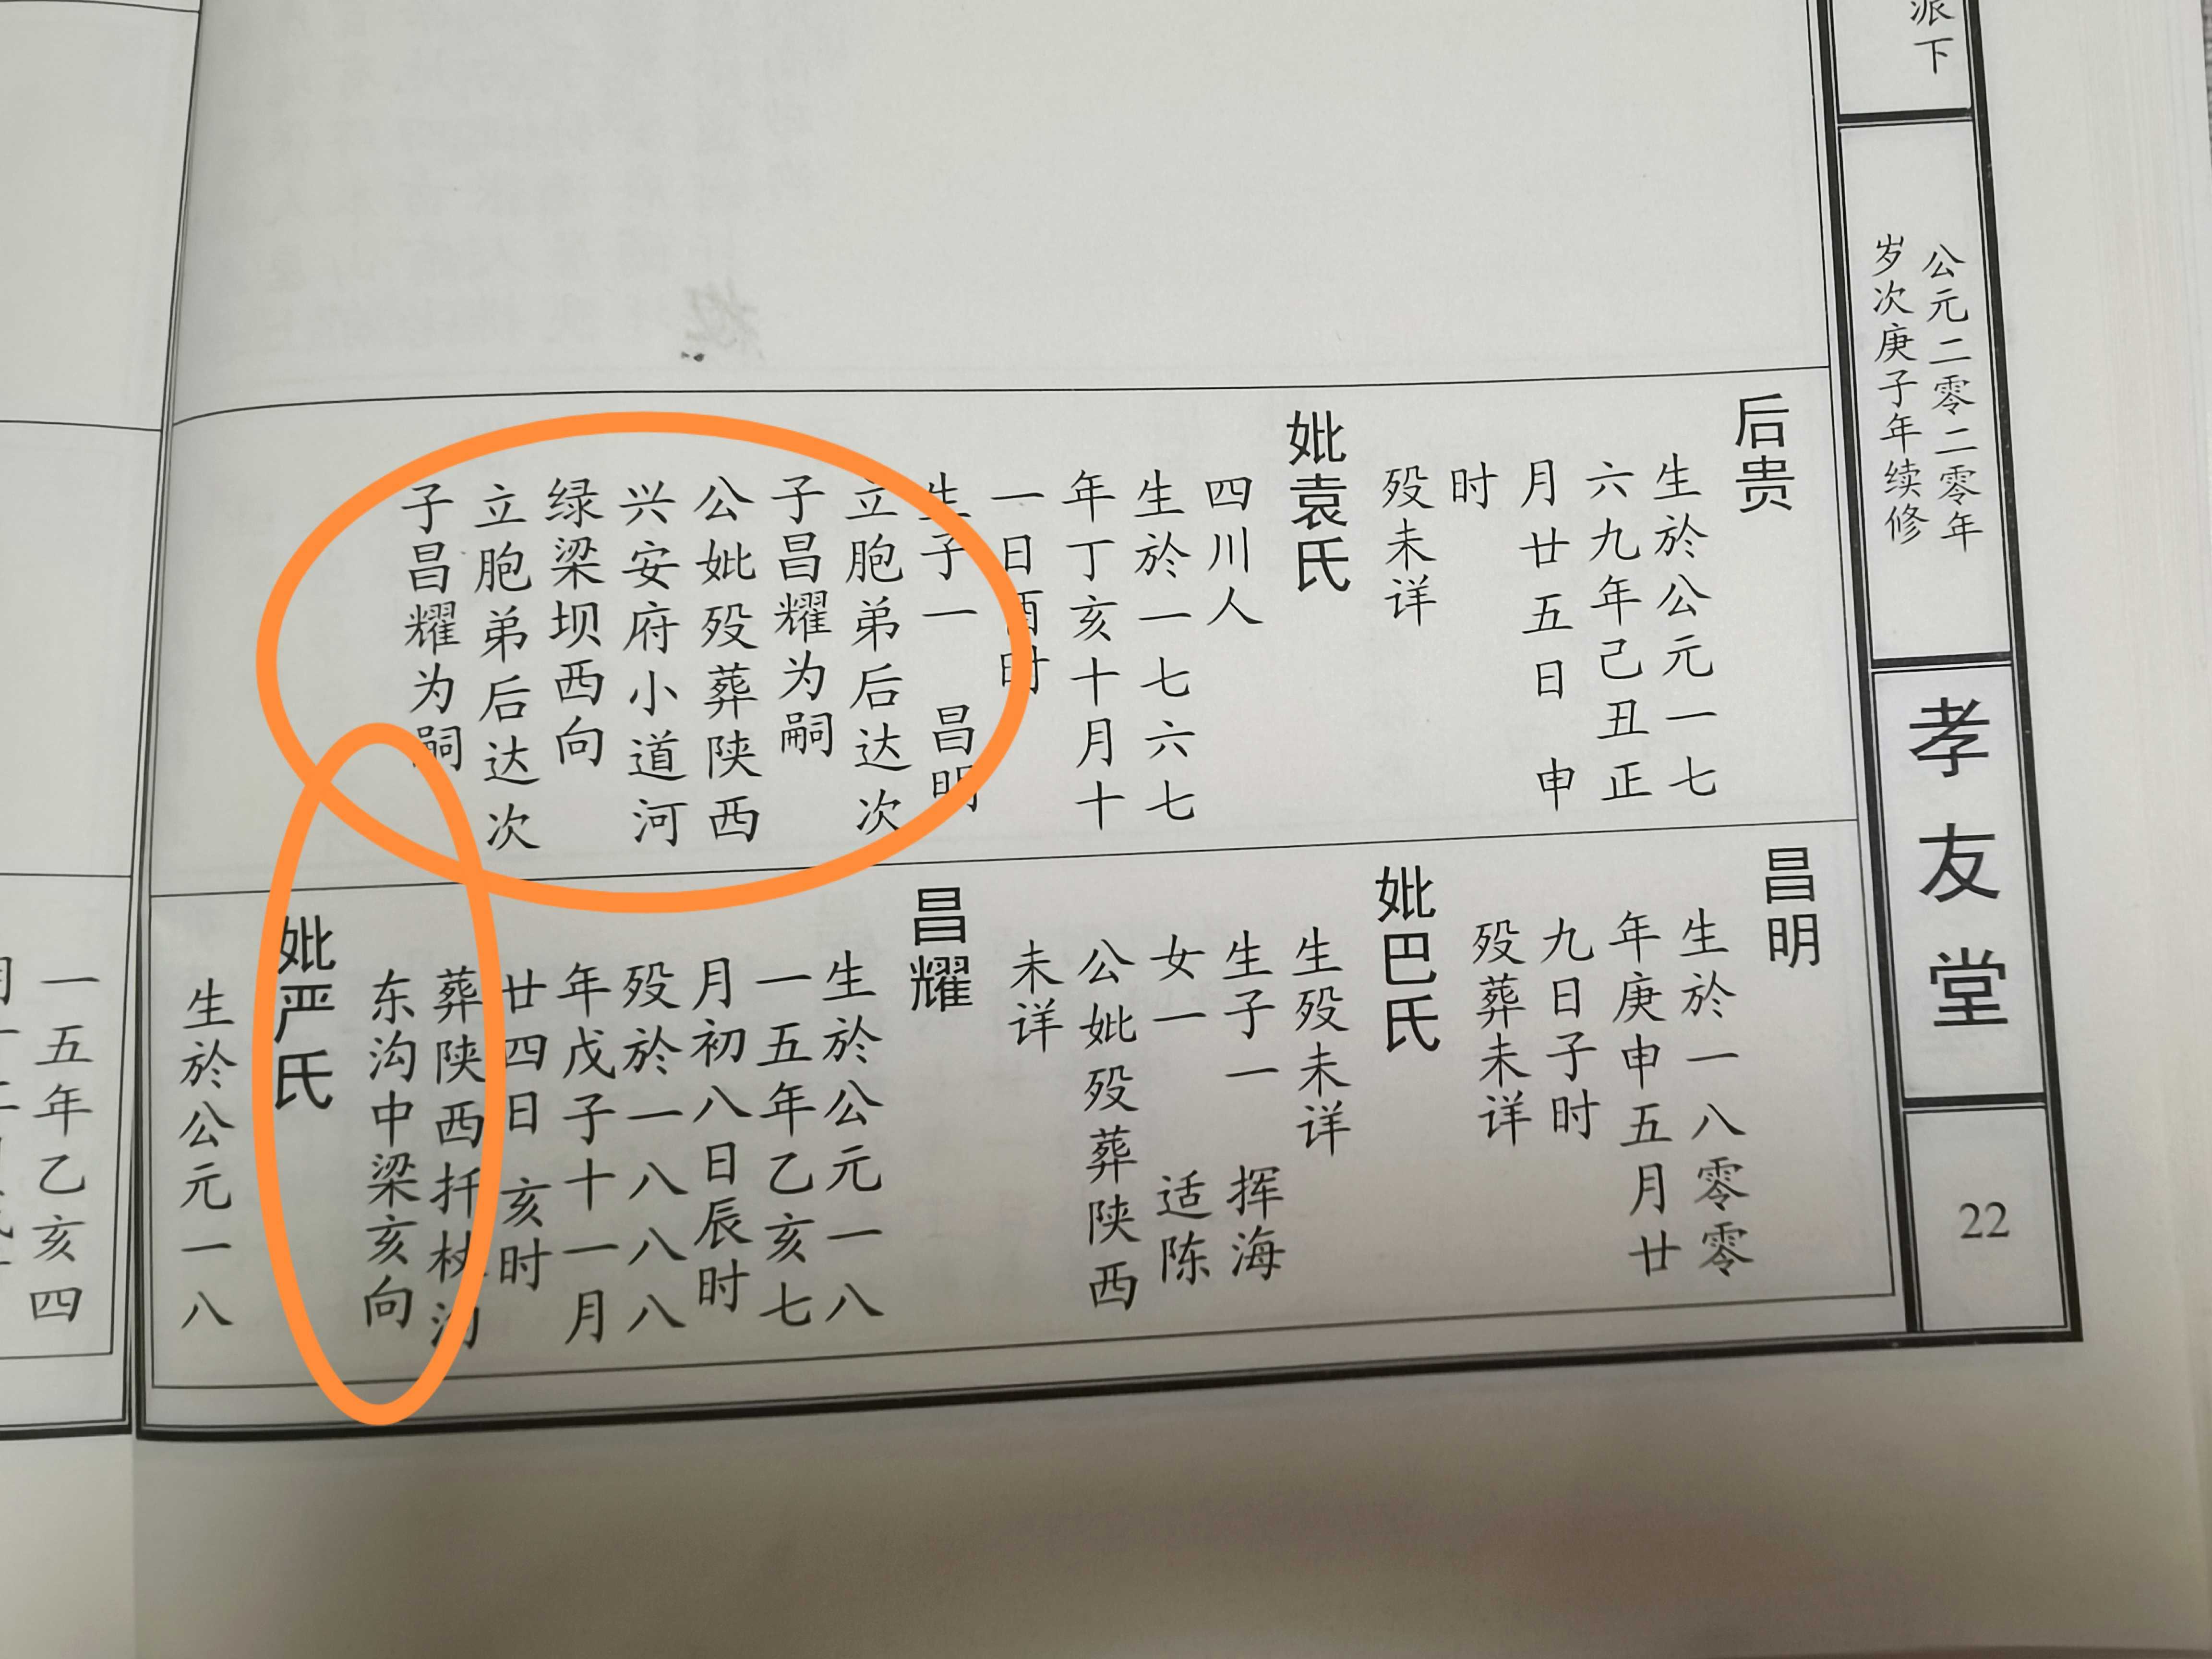 派下
公元二零二零年
岁次庚子年续修
孝友堂
22
后贵
生於公元一七
六九年己丑正
月廿五日 申
时
殁未详
妣袁氏
四川人
生於一七六七
年丁亥十月十
一日酉时
生子一 昌明
立胞弟后达次
子昌耀为嗣
公妣殁葬陕西
兴安府小道河
绿梁坝西向
立胞弟后达次
子昌耀为嗣
昌明
生於一八零零
年庚申五月廿
九日子时
殁葬未详
妣巴氏
生殁未详
生子一 挥海
女一 适陈
公妣殁葬陕西
未详
昌耀
生於公元一八
一五年乙亥七
月初八日辰时
殁於一八八八
年戊子十一月
廿四日 亥时
葬陕西扦杖沟
东沟中梁亥向
妣严氏
生於公元一八
一五年乙亥四